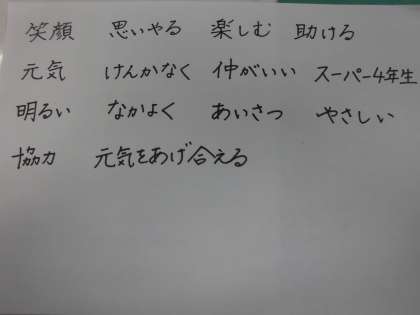 笑顔 思いやる 楽しむ 助ける
元気 けんかなく 仲がいい スーパー4年生
明るい なかよく あいさつ やさしい
協力 元気をあげ合える